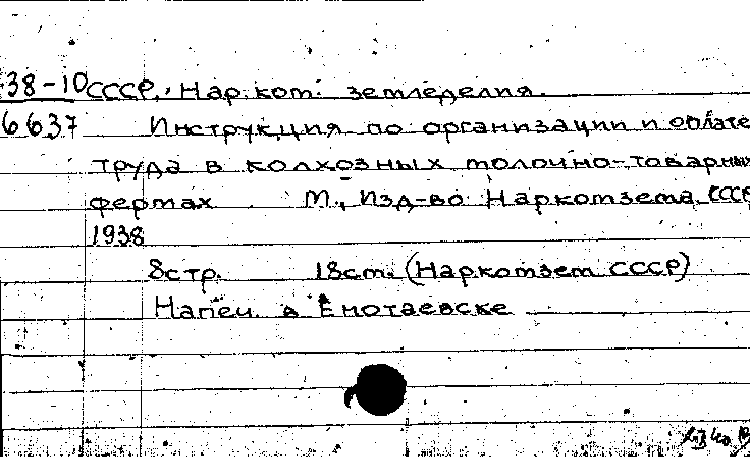 38-10 СССР. Нар. ком. земледелия.
6637 Инструкция по организации и оплате
труда в колхозных молочно-товарных
фермах М., Изд-во Наркомзема СССР
1938
8 стр. 18 см. (Наркомзем СССР)
Напеч. в Енотаевске